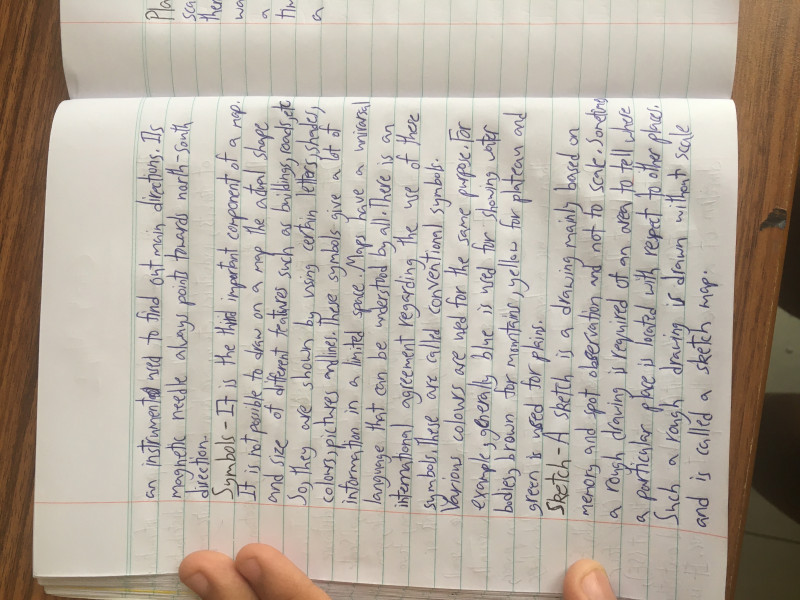 Pla
sca
ther
wa
a
thr
a
an instrument used to find out main directions. Its
magnetic needle always points towards north-south
direction.
Symbols - It is the third important component of a map.
It is not possible to draw on a map the actual shape
and size of different features such as buildings, roads, etc
So, they are shown by using certain letters, shades,
colours, pictures and lines. these symbols give a lot of
information in a limited space. Maps have a universal
language that can be understood by all. There is an
international agreement regarding the use of these
symbols. these are called conventional symbols.
Various colours are used for the same purpose. For
example, generally blue is used for showing water
bodies, brown for mountains, yellow for plateau and
green is used for plains.
Sketch - A sketch is a drawing mainly based on
memory and spot observation and not to scale. Sometimes
a rough drawing is required of an area to tell where
a particular place is located with respect to other places.
Such a rough drawing is drawn without scale
and is called a sketch map.